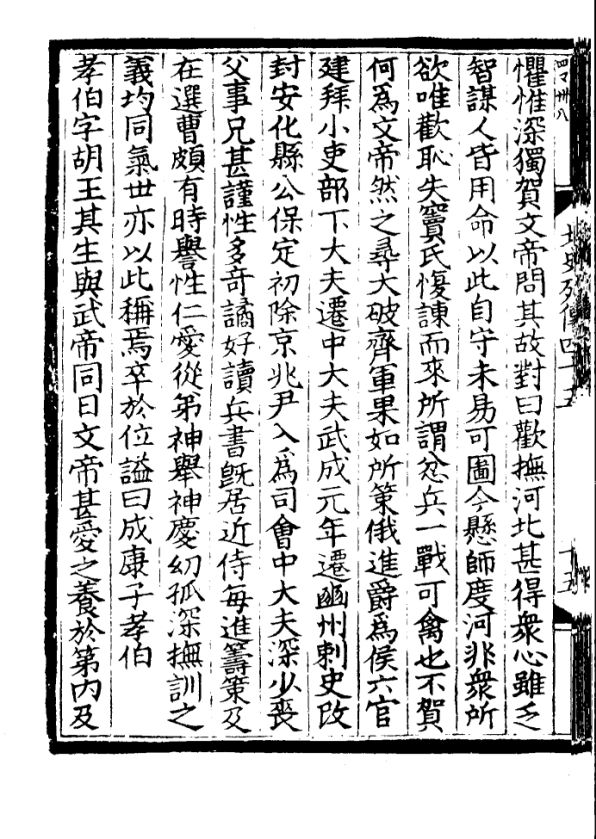 懼惟深獨賀文帝問其故對曰歡撫河北甚得衆心雖乏
智謀人皆用命以此自守未易可圖今懸師度河非衆所
欲唯歡恥失竇氏愎諫而來所謂忿兵一戰可禽也不賀
何爲文帝然之尋大破齊軍果如所策俄進爵爲侯六官
建拜小吏部下大夫遷中大夫武成元年遷豳州刺史改
封安化縣公保定初除京兆尹入爲司會中大夫深少喪
父事兄甚謹性多奇譎好讀兵書旣居近侍每進籌策及
在選曹頗有時譽性仁愛從弟神舉神慶幼孤深撫訓之
義均同氣世亦以此稱焉卒於位謚曰成康子孝伯
孝伯字胡王其生與武帝同日文帝甚愛之養於第内及